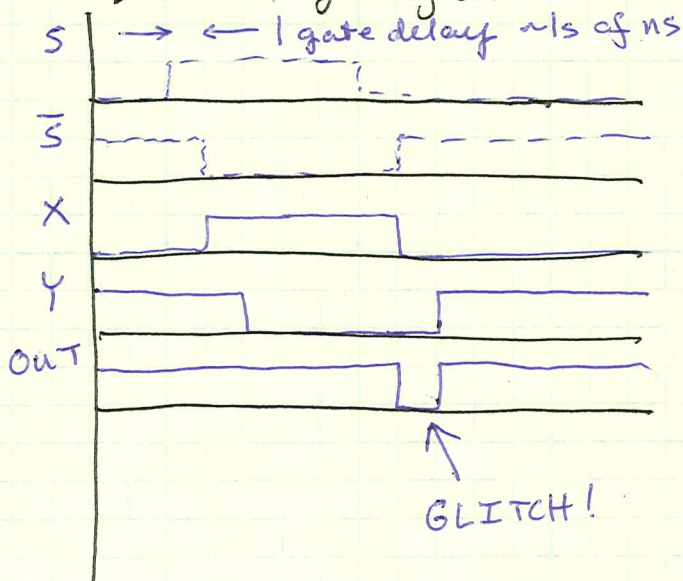 S → ← 1 gate delay ~1s of ns
S̅
X
Y
OUT
GLITCH!